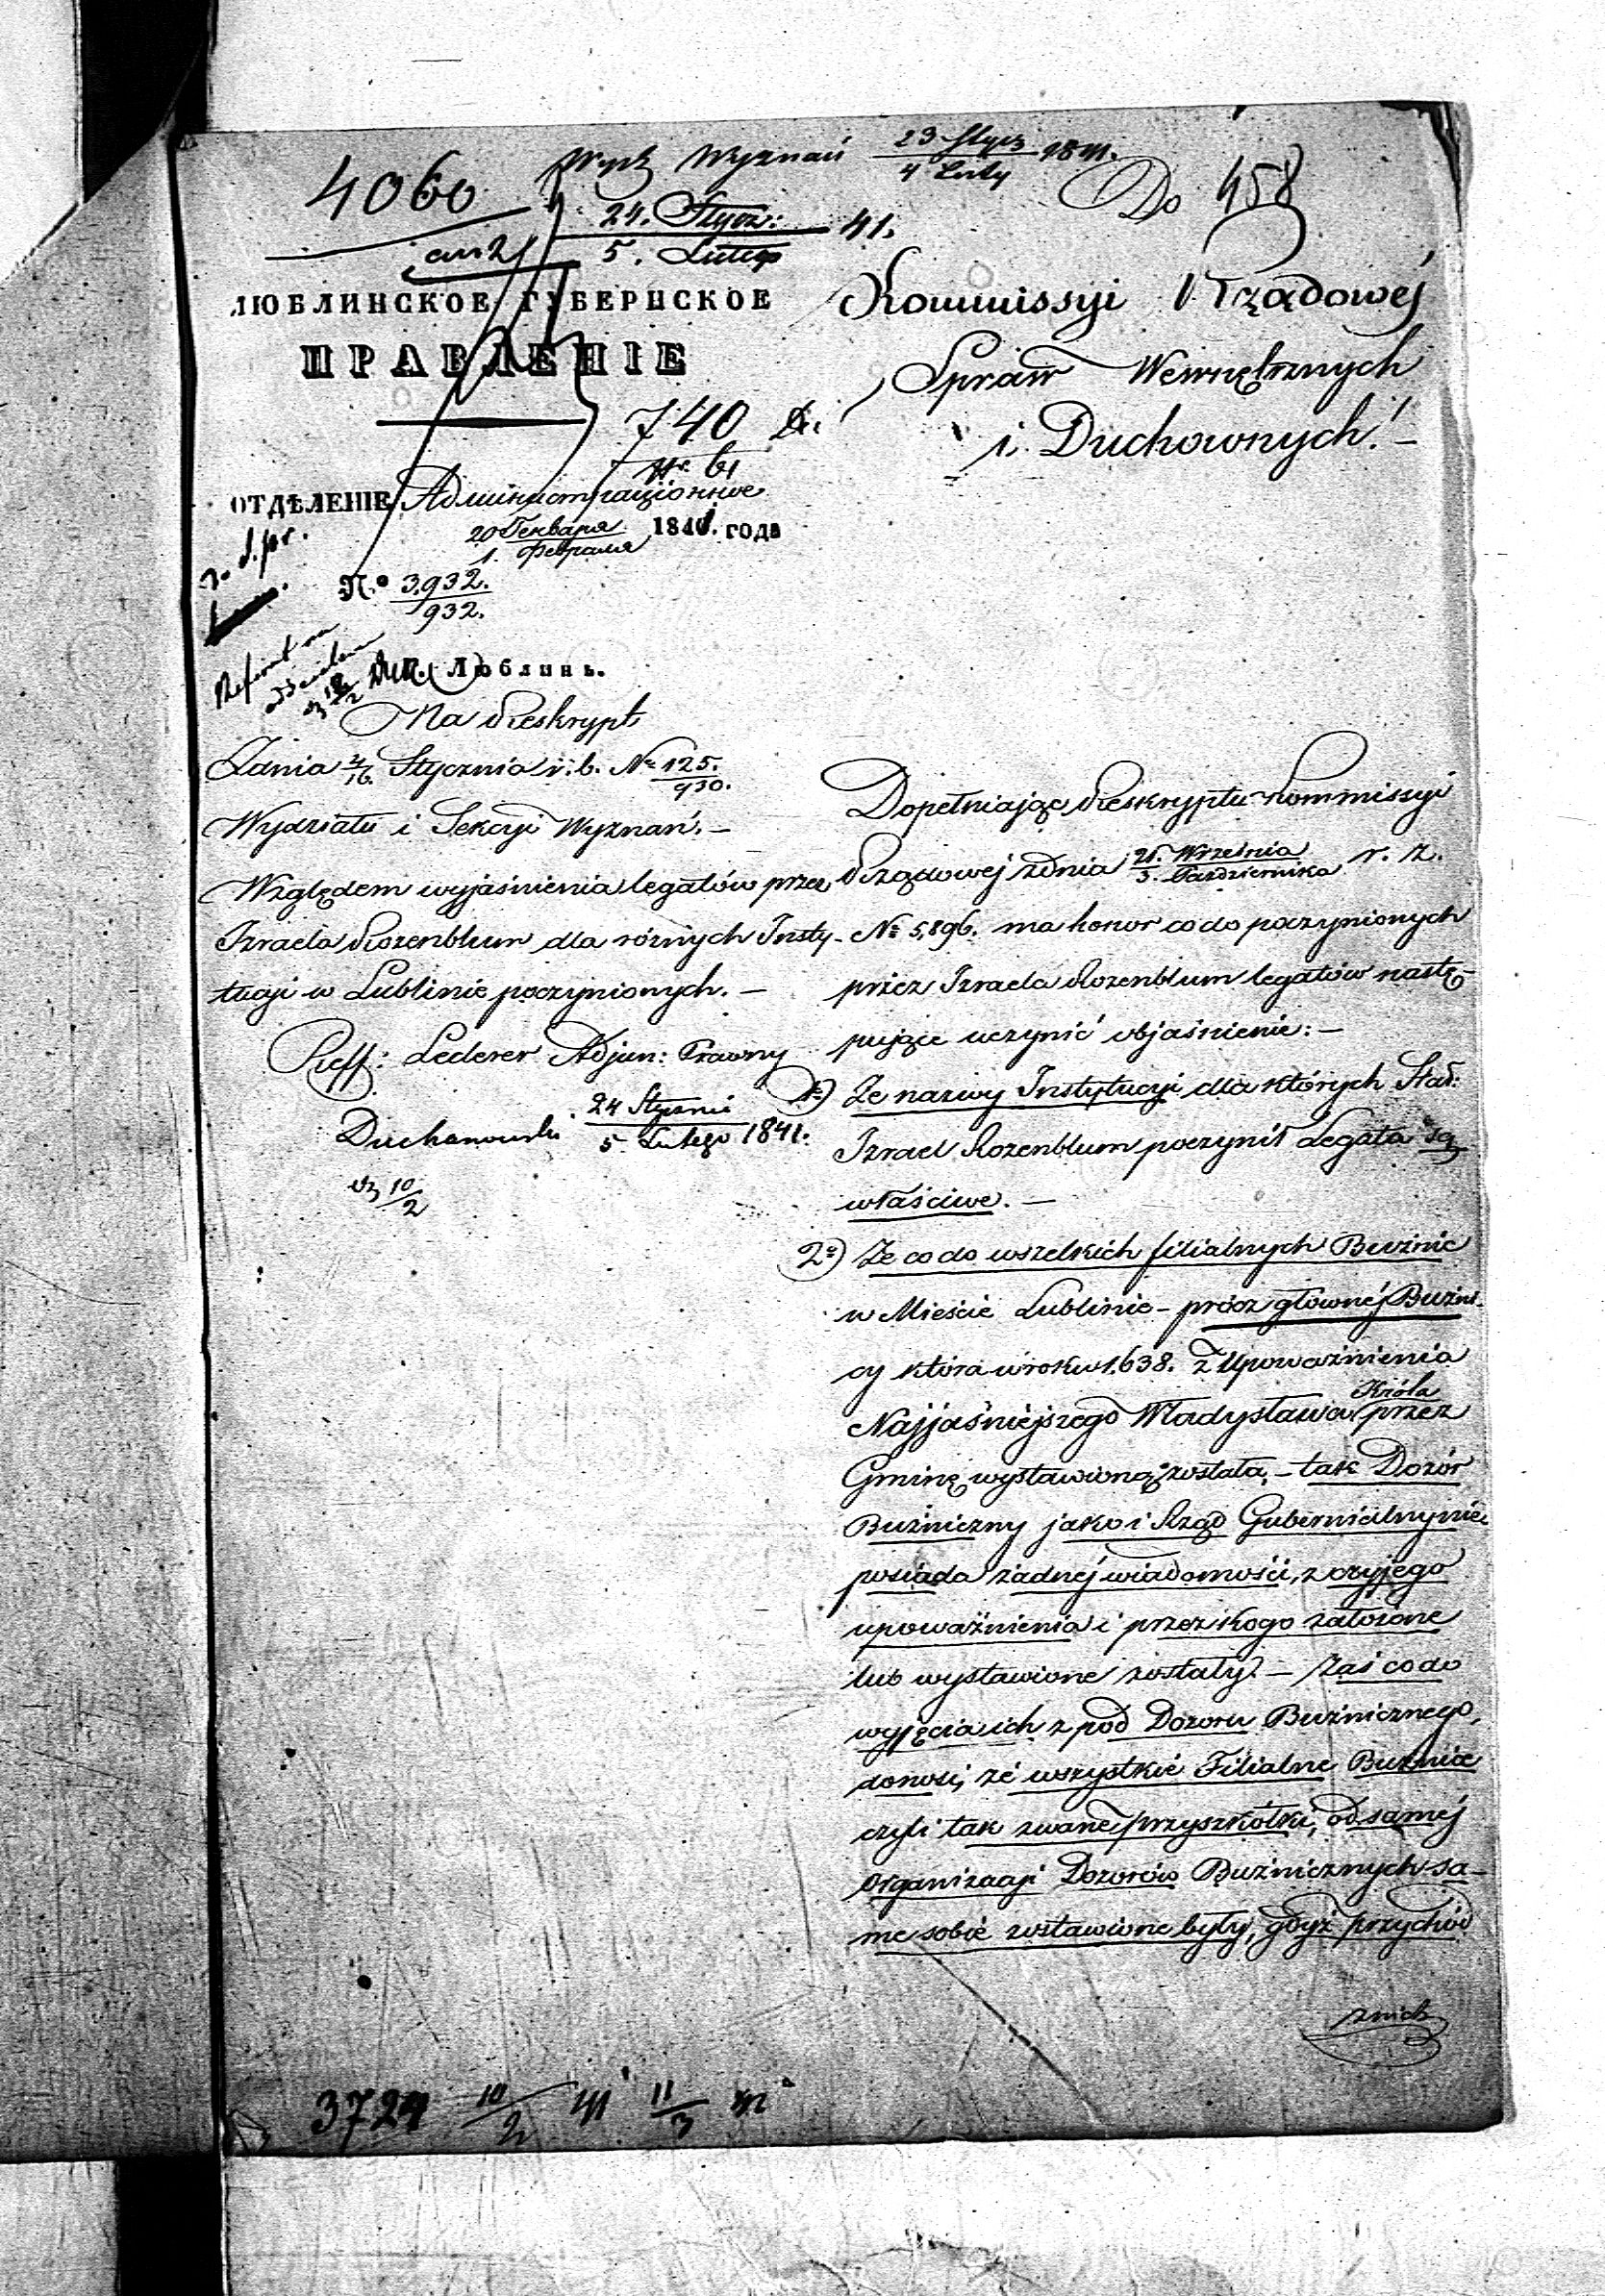 4060
Wyd. Wyznań 23 Stycz 1841.
4 Luty
Do 458
24. Stycz: 41.
5. Luteg
ЛЮБЛИНСКОЕ ГУБЕРНСКОЕ
ПРАВЛЕНІЕ
740
ОТДѢЛЕНІЕ Администраціонное
20 Генваря 1841. года
1. Февраля
N.º 3,932.
932.
Люблинъ.
Na Reskrypt
Zdnia 4/16. Stycznia r: b. Nº 125.
930.
Wydziału i Sekcyi Wyznań. —
Względem wyjaśnienia legatów przez
Izraela Rozenblum dla róznych Insty-
tucji w Lublinie poczynionych. —
Reff: Lederer Adjun: Prawny
24 Stycznia
5 Lutego 1841.
10/2
Kommissyi Rządowéj
Spraw Wewnętrznych
i Duchownych! —
Dopełniając Reskryptu Kommissyi
Rządowej zdnia 21. Września r. z.
3. Pazdziernika
Nº 5,896. ma honor co do poczynionych
przez Izraela Rozenblum legatów nastę-
pujące uczynić objaśnienie: —
1º) Ze nazwy Instytucyi dla których Stał:
Izrael Rozenblum poczynił Legata są
właściwe. —
2º) Ze co do wszelkich filialnych Buźnic
w Mieście Lublinie — prócz głównéj Buźni-
cy która w roku 1638. z Upoważnienia
Najjaśniejszego Władysława Króla przez
Gminę wystawioną została, — tak Dozór
Buźniczny jako i Rząd Gubernialny nie
posiada żadnéj wiadomości, z czyjego
upoważnienia i przez kogo założone
lub wystawione zostały. — Zaś co do
wyjęcia ich z pod Dozoru Buźnicznego,
donosi, że wszystkie Filialne Buźnice
czyli tak zwane przyszkółki, od saméj
Organizacji Dozorów Buźnicznych sa-
me sobie zostawione były, gdyż przychód
z nich
3724 10/2 11/3